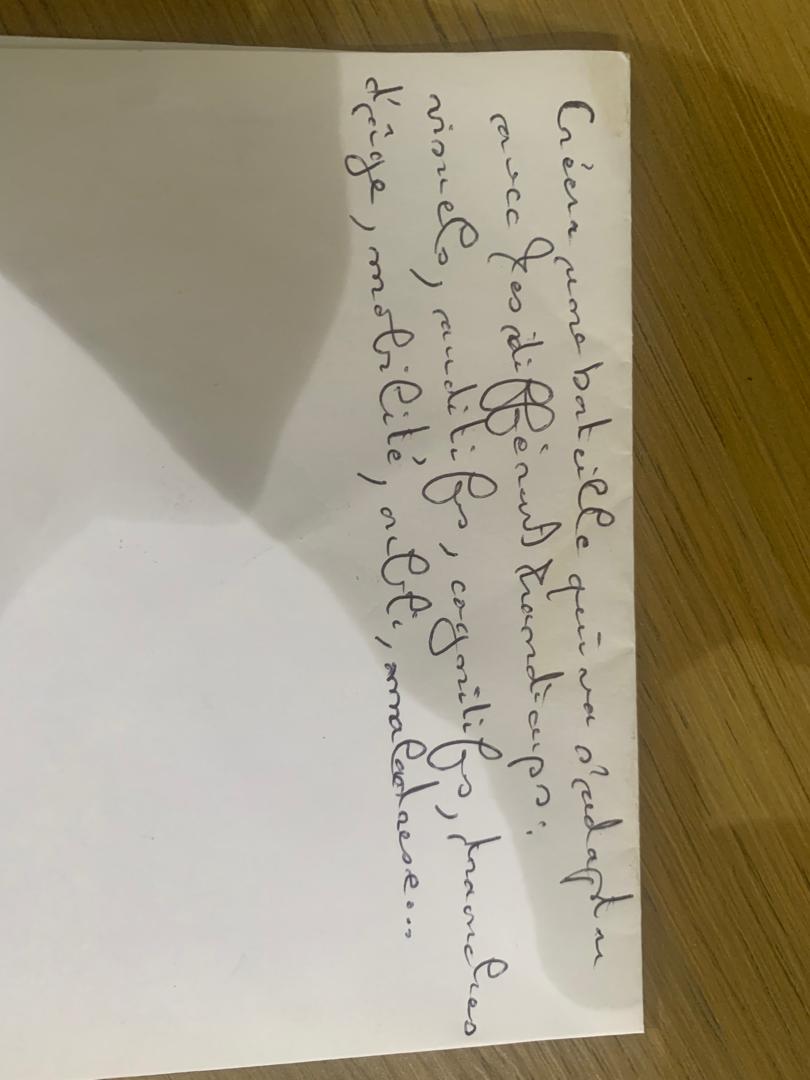 Créer une bouteille qui va s'adapter
avec les différents handicaps :
visuels, auditifs, cognitifs, tranches
d'âge, mobilité, maladresse...